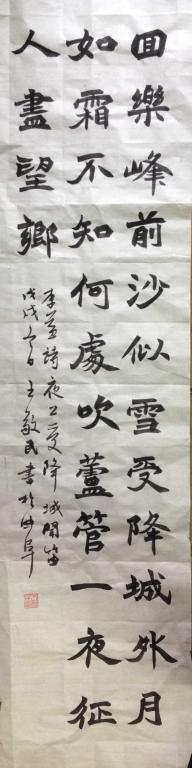 回樂峰前沙似雪受降城外月
如霜不知何處吹蘆管一夜征
人盡望鄉
李益詩夜上受降城聞笛
戊戌冬日王敬民書於曲阜